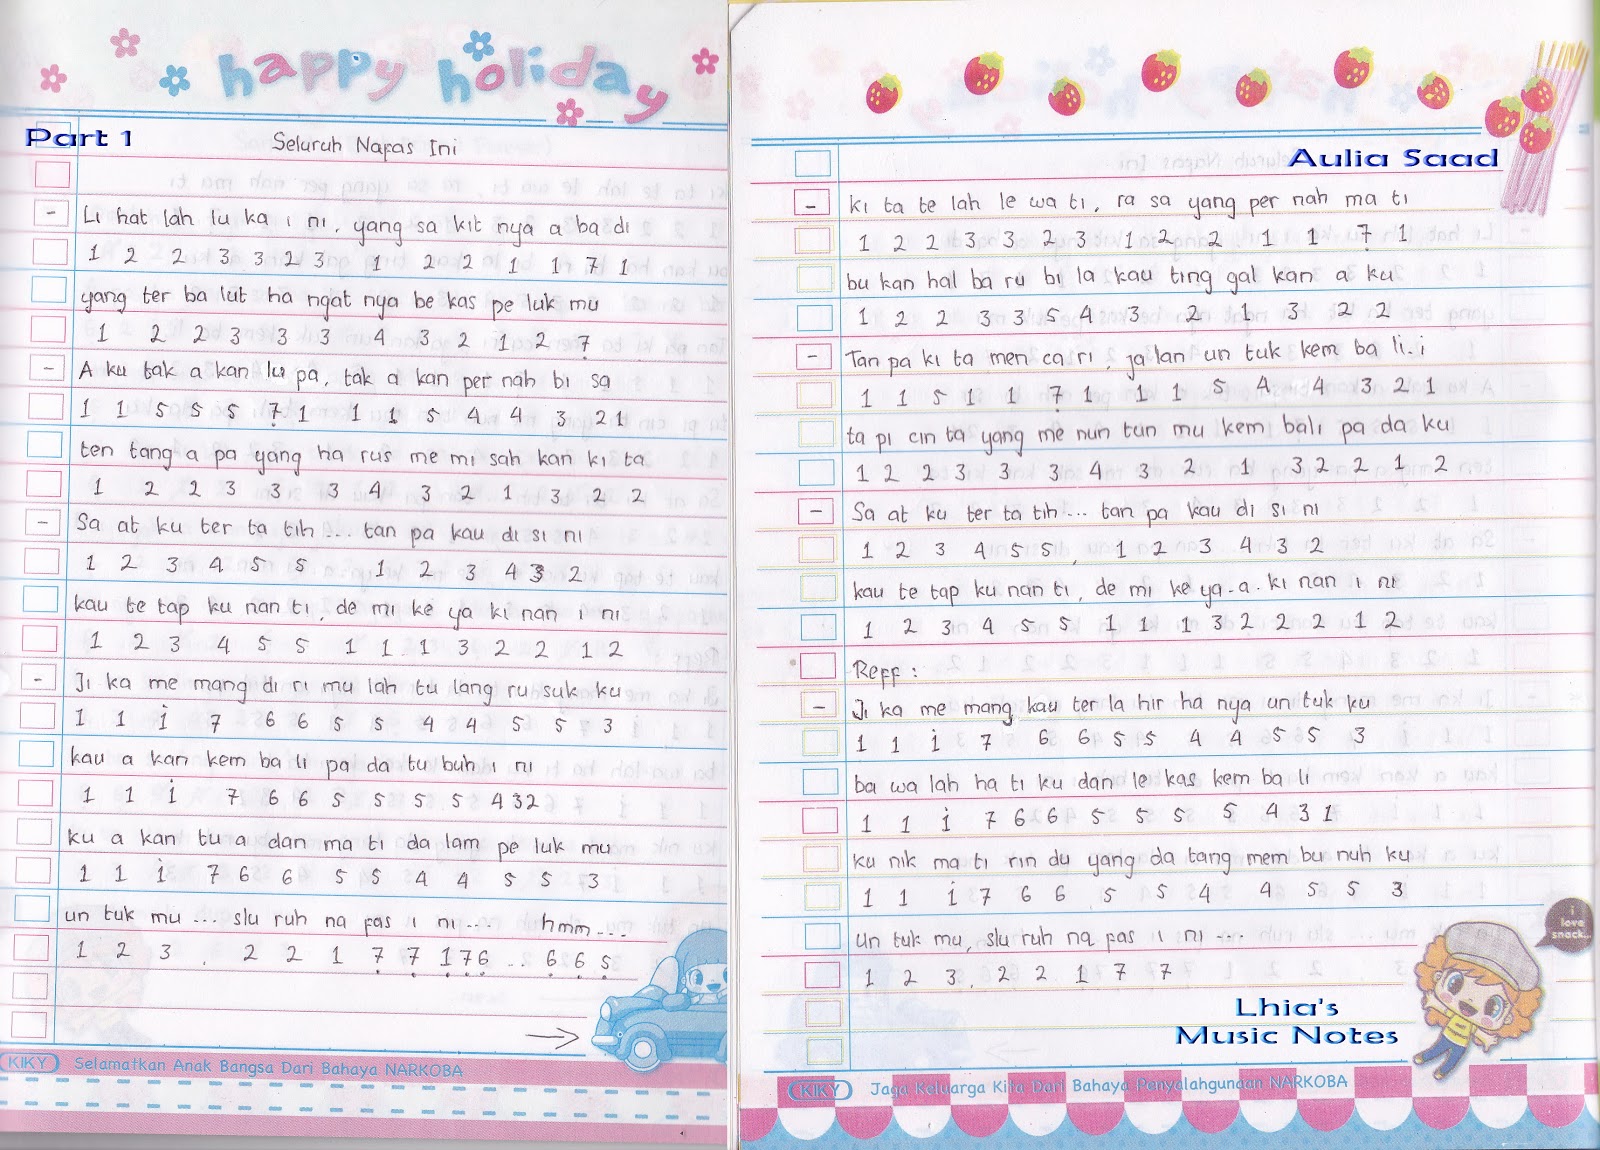 happy holiday
Part 1
Seluruh Napas Ini
- Li hat lah lu ka i ni, yang sa kit nya a ba di
1 2 2 3 3 2 3 1 2 2 1 1 7̣ 1
yang ter ba lut ha ngat nya be kas pe luk mu
1 2 2 3 3 3 4 3 2 1 2 7̣
- A ku tak a kan lu pa, tak a kan per nah bi sa
1 1 5 5 5 7̣ 1 1 1 5 4 4 3 2 1
ten tang a pa yang ha rus me mi sah kan ki ta
1 2 2 3 3 3 4 3 2 1 3 2 2
- Sa at ku ter ta tih ... tan pa kau di si ni
1 2 3 4 5 5 1 2 3 4 3 2
kau te tap ku nan ti, de mi ke ya ki nan i ni
1 2 3 4 5 5 1 1 1 3 2 2 1 2
- Ji ka me mang di ri mu lah tu lang ru suk ku
1 1 i 7 6 6 5 5 4 4 5 5 3
kau a kan kem ba li pa da tu buh i ni
1 1 i 7 6 6 5 5 5 5 4 3 2
ku a kan tu a dan ma ti da lam pe luk mu
1 1 i 7 6 6 5 5 4 4 5 5 3
un tuk mu ... slu ruh na pas i ni ... hmm ...
1 2 3 . 2 2 1 7̣ 7̣ 1̣ 7̣ 6̣ .. 6̣ 6̣ 5̣
KIKY Selamatkan Anak Bangsa Dari Bahaya NARKOBA
Aulia Saad
- ki ta te lah le wa ti, ra sa yang per nah ma ti
1 2 2 3 3 2 3 1 2 2 1 1 7̣ 1
bu kan hal ba ru bi la kau ting gal kan a ku
1 2 2 3 3 5 4 3 2 1 3 2 2
- Tan pa ki ta men ca ri, ja lan un tuk kem ba li.i
1 1 5 1 1 7̣ 1 1 1 5 4 4 3 2 1
ta pi cin ta yang me nun tun mu kem bali pa da ku
1 2 2 3 3 3 4 3 2 1 3 2 2 1 2
- Sa at ku ter ta tih ... tan pa kau di si ni
1 2 3 4 5 5, 1 2 3 4 3 2
kau te tap ku nan ti, de mi ke ya-a. ki nan i ni
1 2 3 4 5 5 1 1 1 3 2 2 2 1 2
Reff :
- Ji ka me mang kau ter la hir ha nya un tuk ku
1 1 i 7 6 6 5 5 4 4 5 5 3
ba wa lah ha ti ku dan le kas kem ba li
1 1 i 7 6 6 5 5 5 5 4 3 1
ku nik ma ti rin du yang da tang mem bu nuh ku
1 1 i 7 6 6 5 5 4 4 5 5 3
un tuk mu, slu ruh na pas i i ni ...
1 2 3 . 2 2 1 7̣ 7̣
i love snack...
Lhia's
Music Notes
KIKY Jaga Keluarga Kita Dari Bahaya Penyalahgunaan NARKOBA